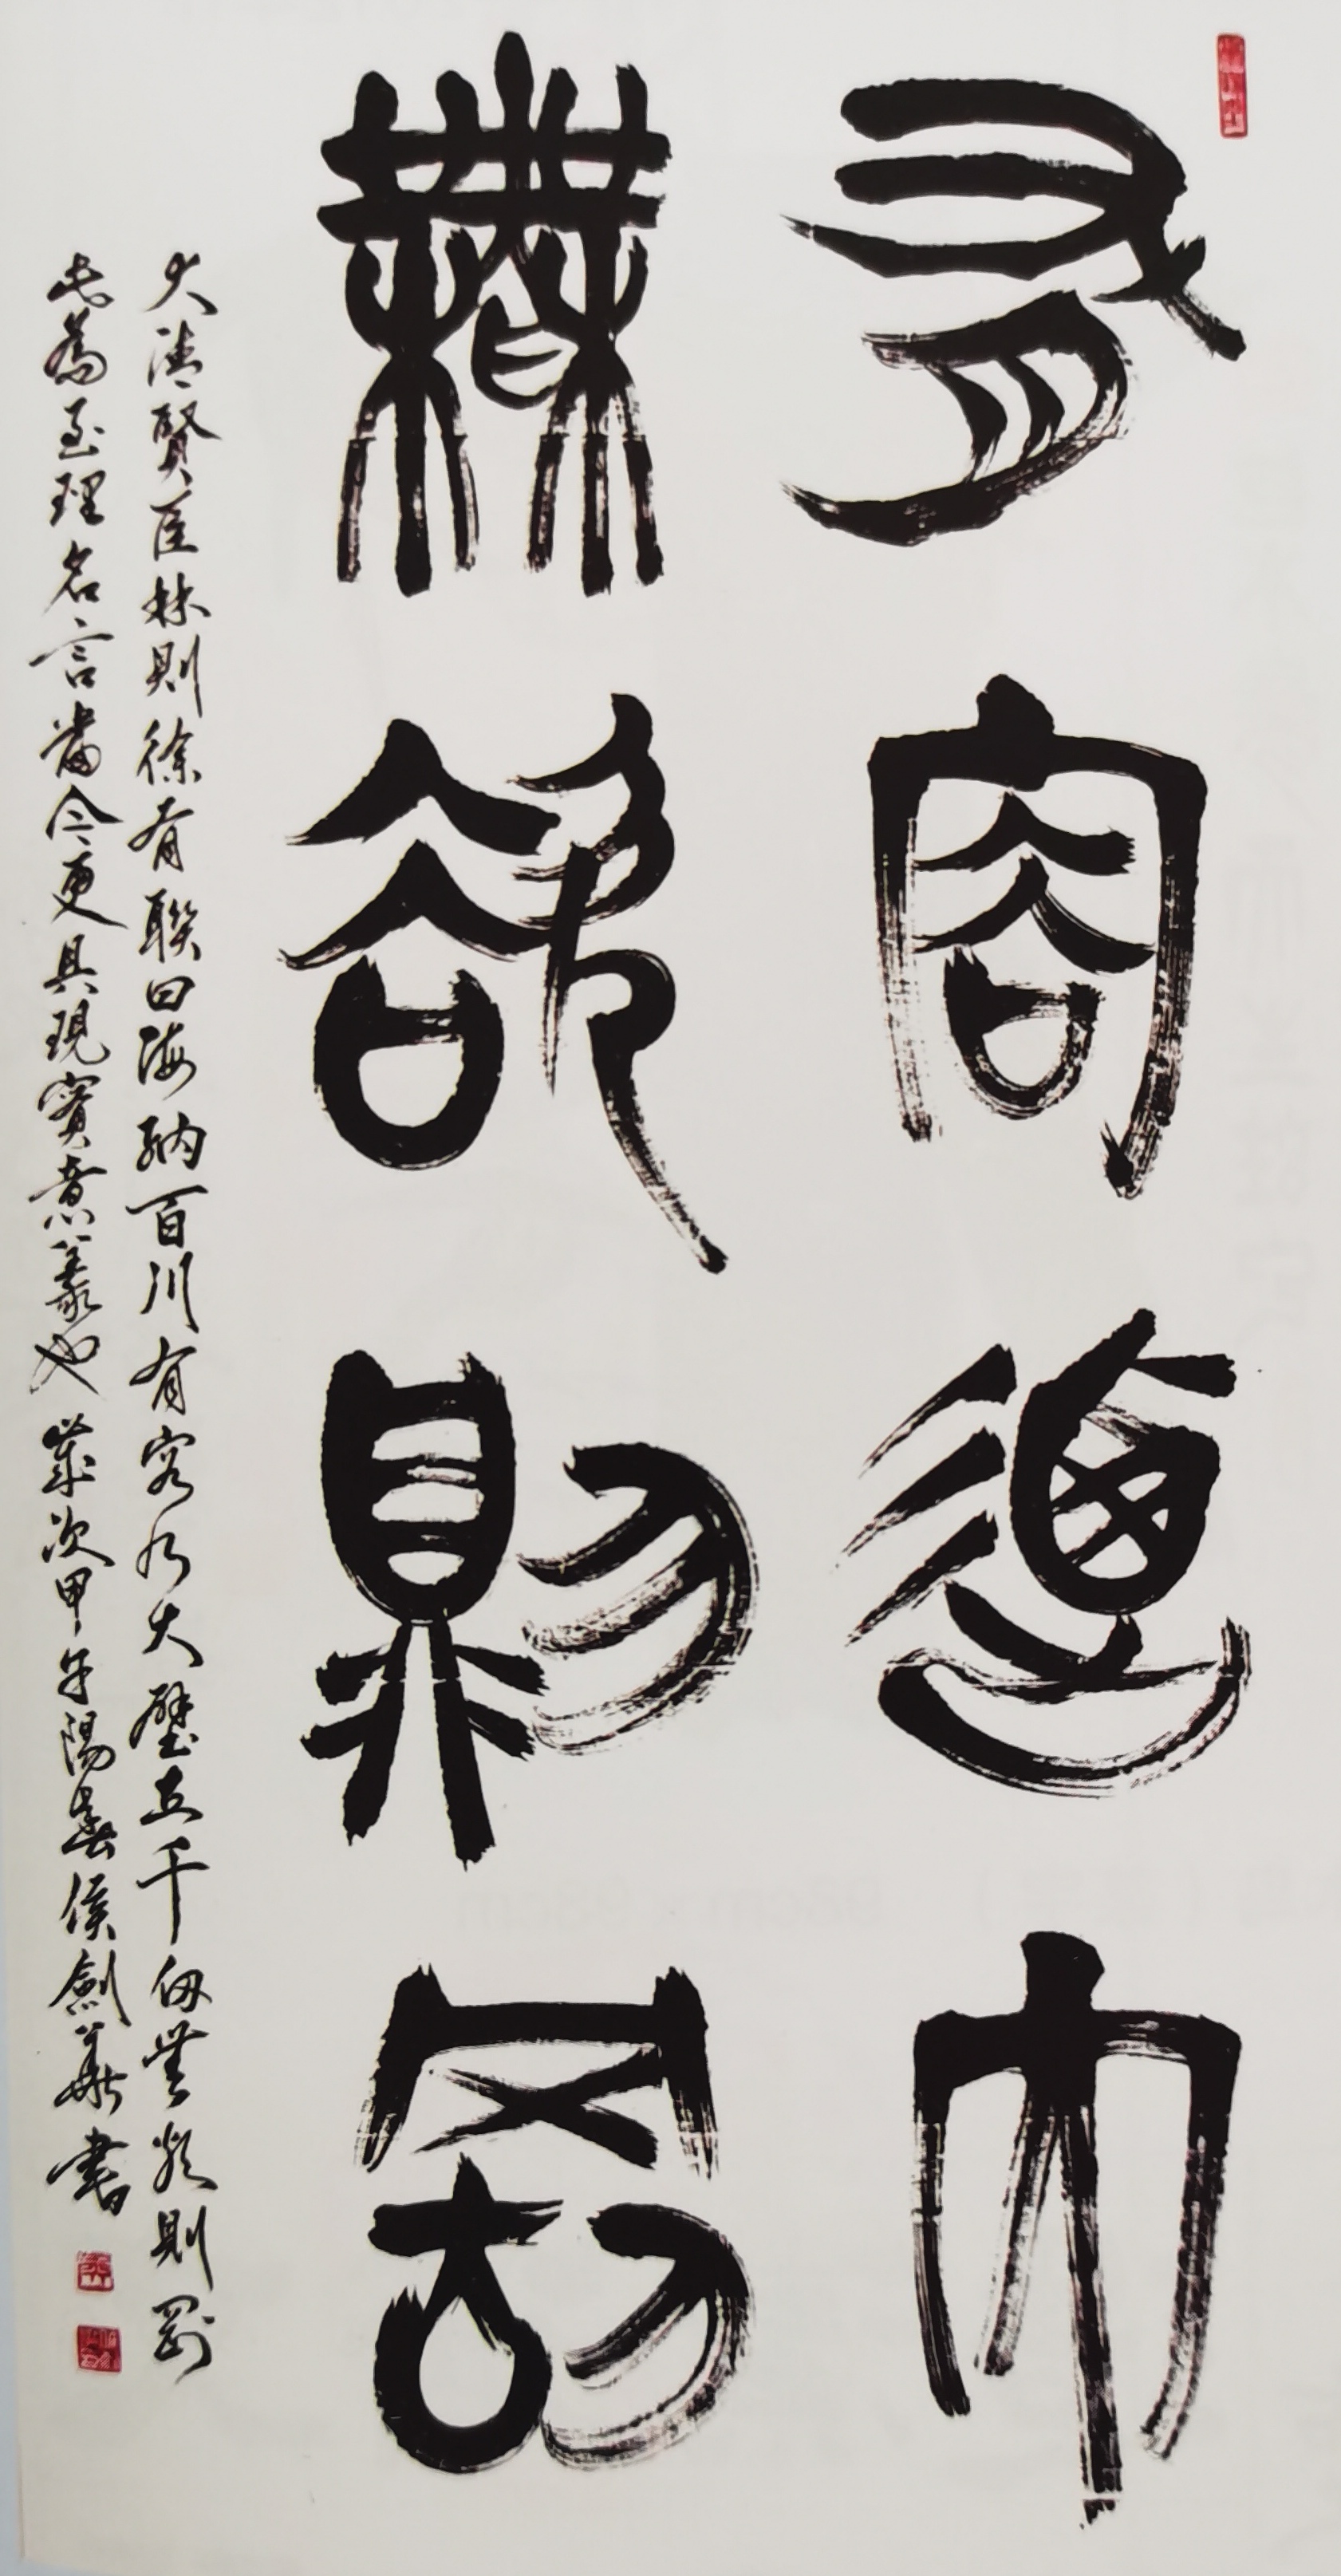 有容乃大
無欲則剛
大清賢臣林則徐有聯曰海納百川有容乃大壁立千仞無欲則剛
此為至理名言當今更具現實意義也歲次甲午陽春侯劍華書